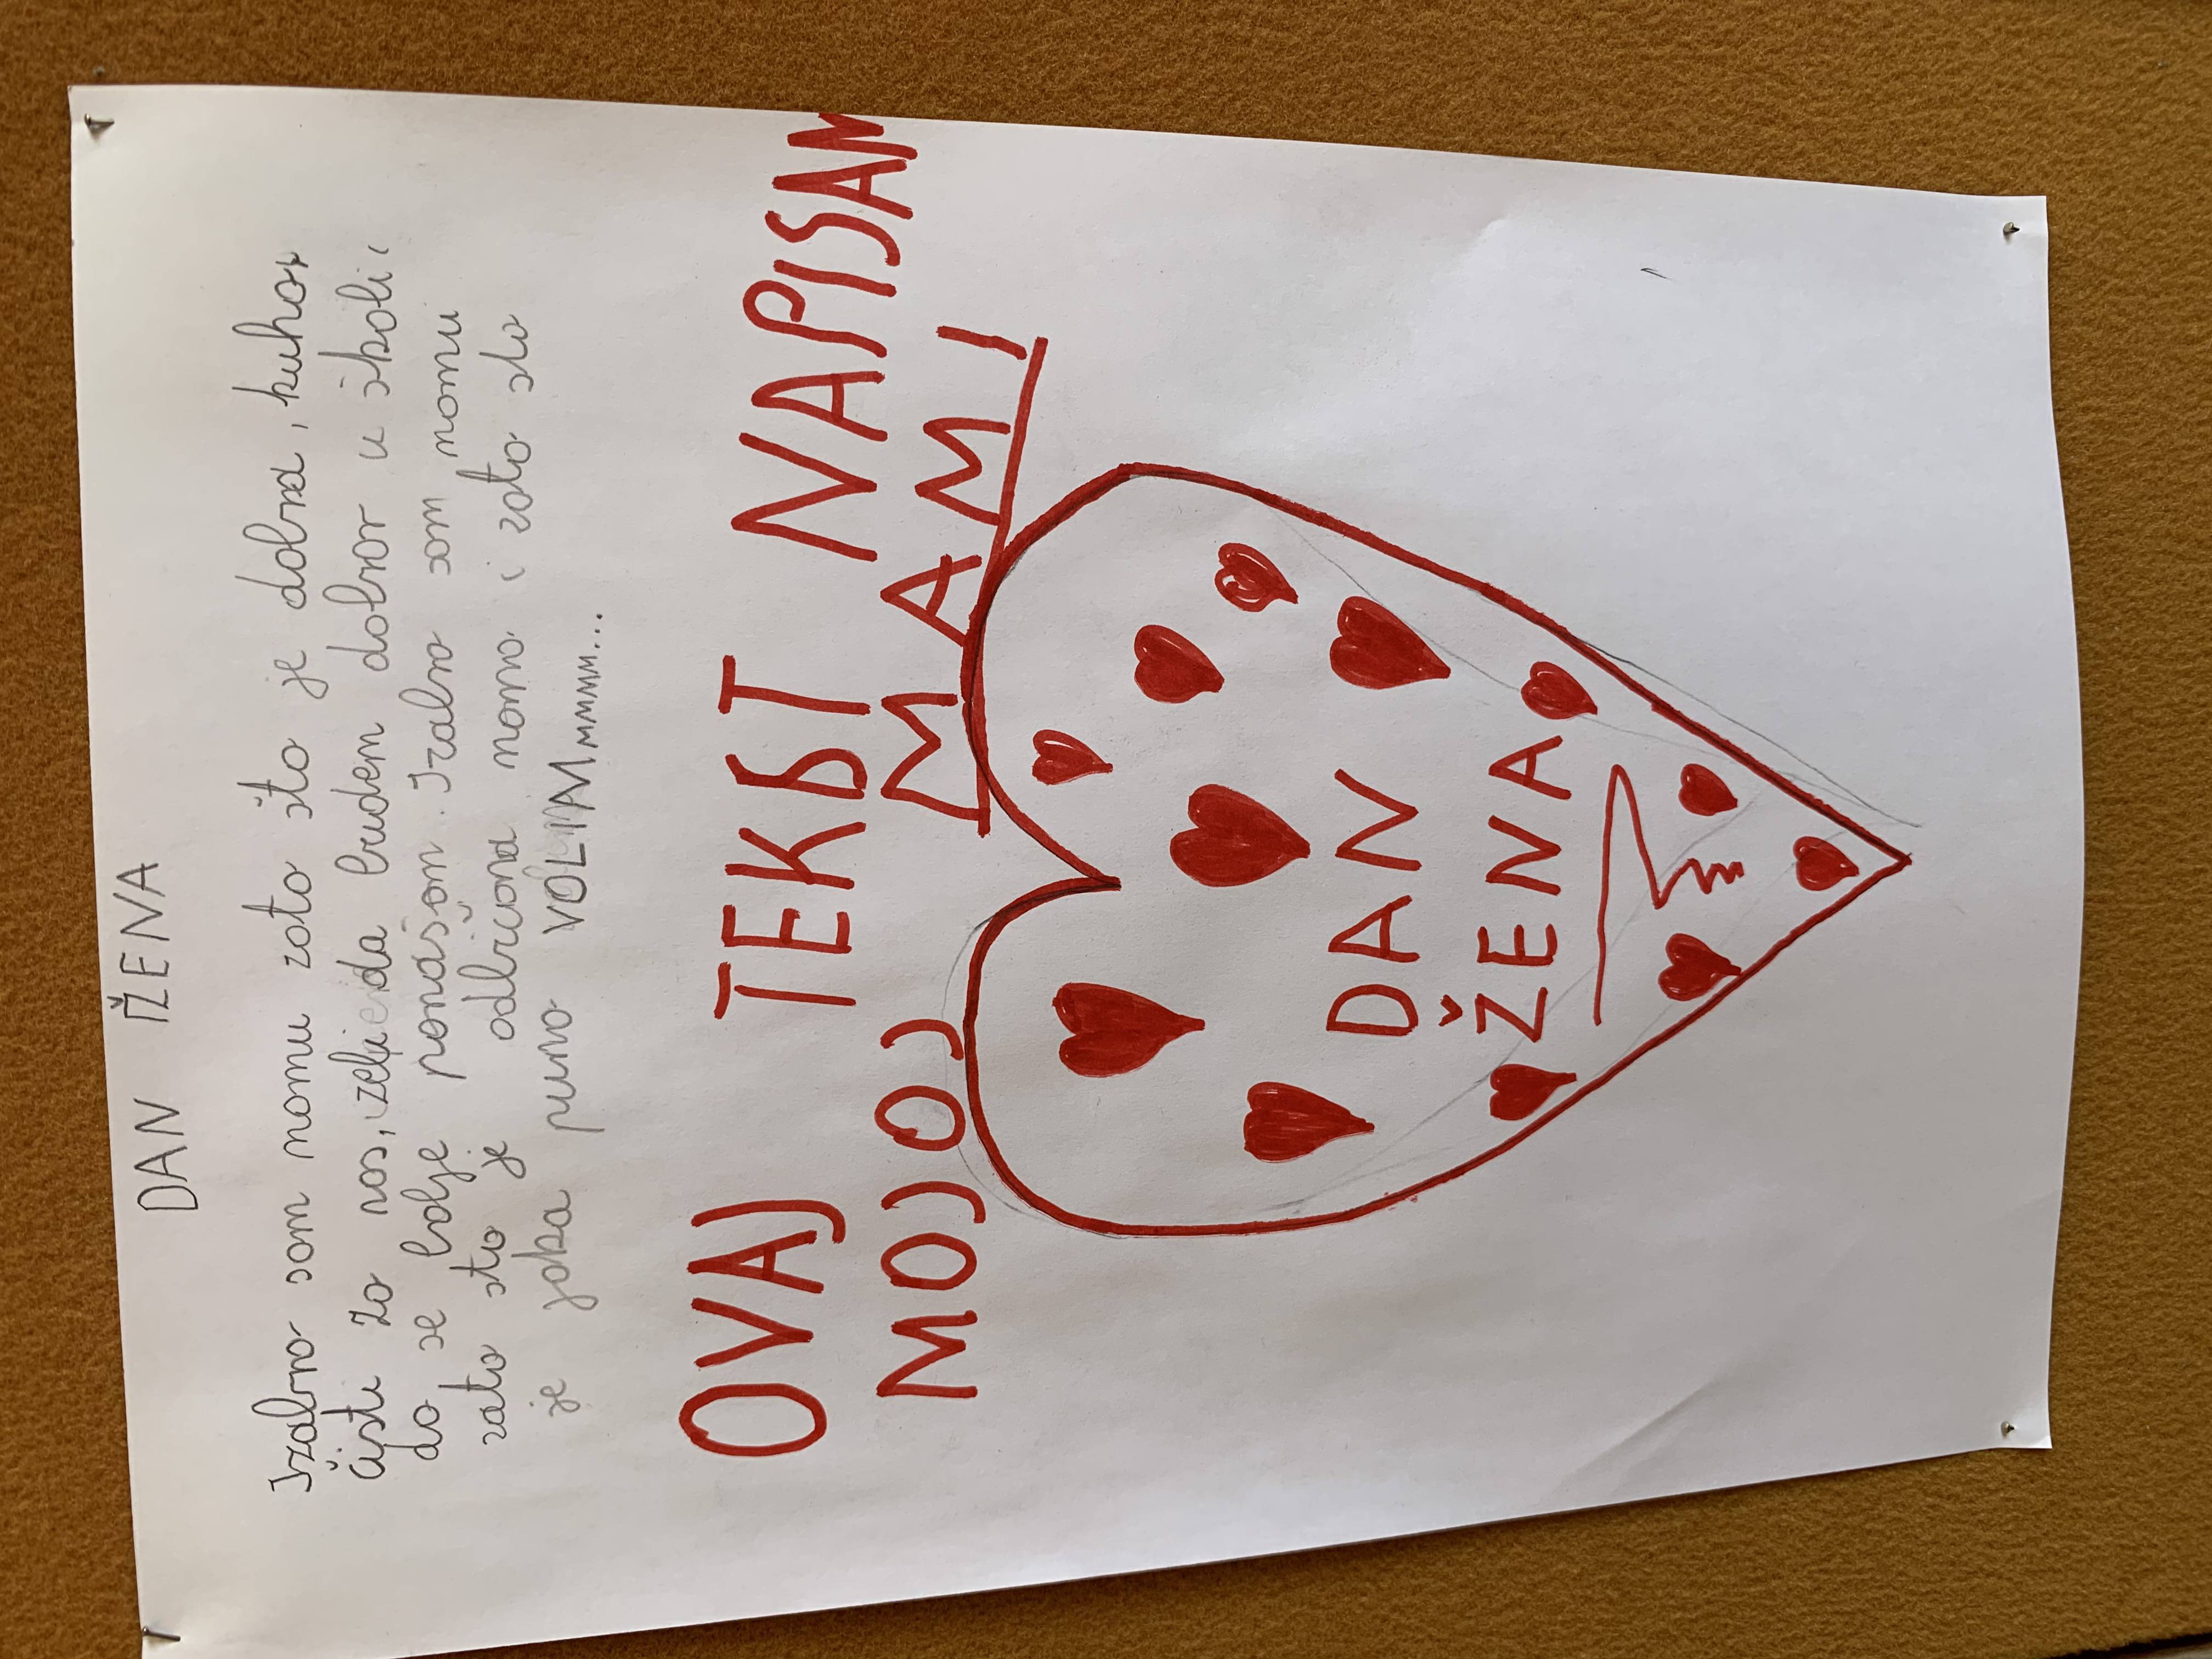 DAN ŽENA
Izabra sam mamu zato što je dobra, kuha
čisti za nas, želi da budem dobar u školi i
da se bolje ponašam. Izabra sam mamu
zato što je odlična mama i zato što
je jaka puno VOLIMMMMMM...
OVAJ TEKST NAPISAN
MOJOJ MAMI
DAN
ŽENA